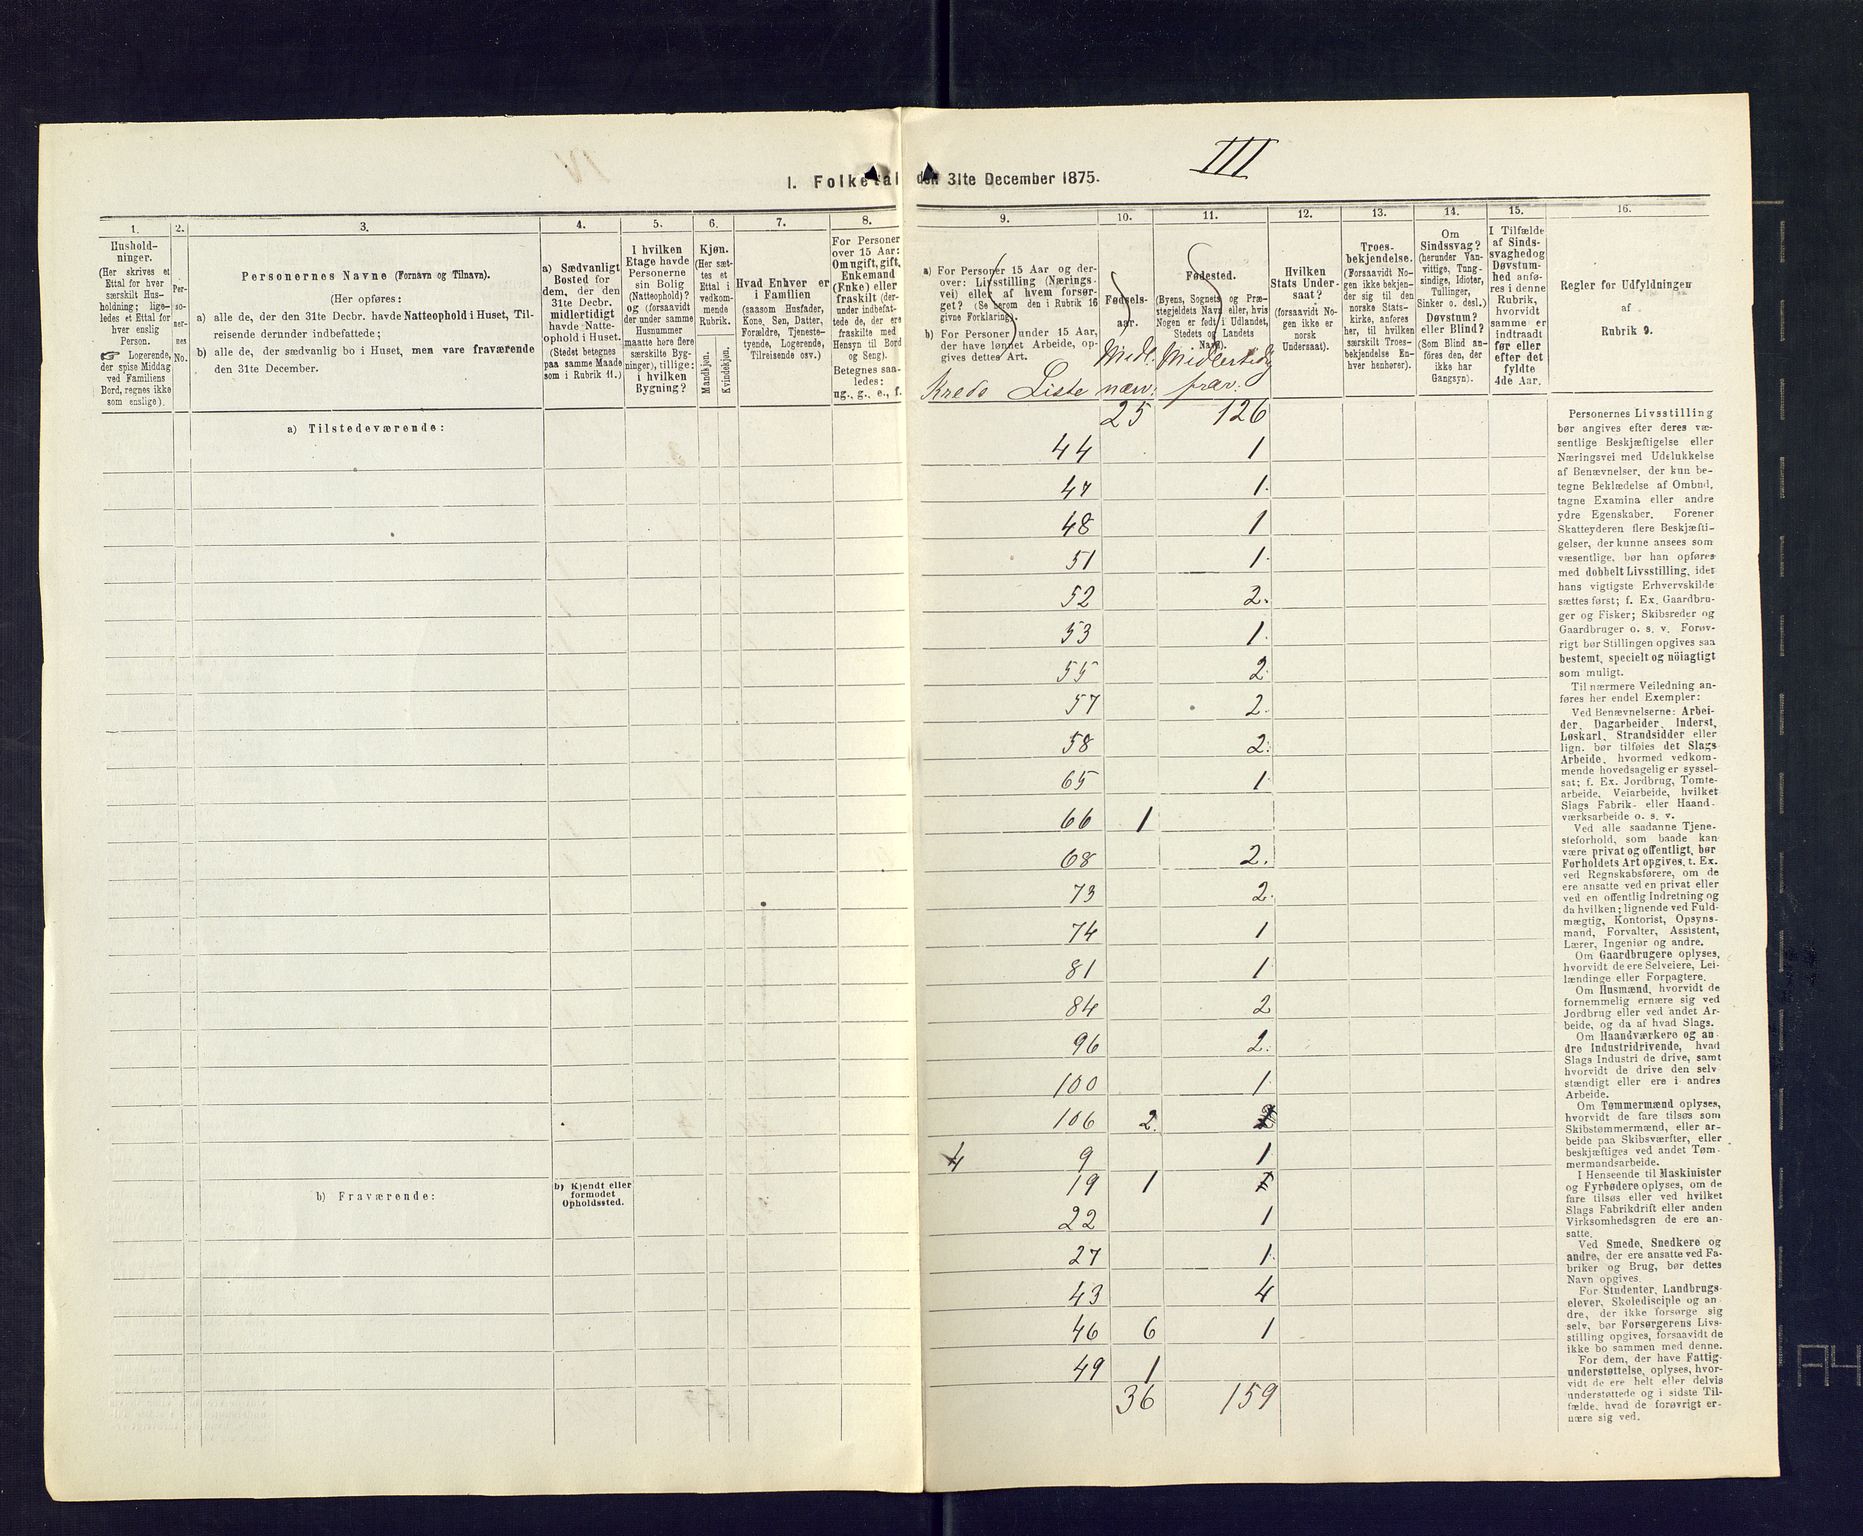 III
I. Folketal den 31te December 1875.
1.
Hushold-
ninger.
(Her skrives et
Ettal for hver
særskilt Hus-
holdning; lige-
ledes et Ettal for
hver enslig
Person.
☞ Logerende,
der spise Middag
ved Familiens
Bord, regnes ikke
som enslige).
2.
Per-
so-
ner-
nes
No.
3.
Personernes Navne (Fornavn og Tilnavn).
(Her opføres:
a) alle de, der den 31te Decbr. havde Natteophold i Huset, Til-
reisende derunder indbefattede;
b) alle de, der sædvanlig bo i Huset, men vare fraværende
den 31te December.
4.
a) Sædvanligt
Bosted for
dem, der den
31te Decbr.
midlertidigt
havde Natte-
ophold i Huset.
(Stedet betegnes
paa samme Maade
som i Rubrik 11.)
5.
I hvilken
Etage havde
Personerne
sin Bolig
(Natteophold)?
og (forsaavidt
der under samme
Husnummer
maatte høre flere
særskilte Byg-
ninger), tillige:
i hvilken
Bygning?
6.
Kjøn.
(Her sæt-
tes et
Ettal i
vedkom-
mende
Rubrik.
Mandkjøn.
Kvindekjøn.
7.
Hvad Enhver er
i Familien
(saasom Husfader,
Kone, Søn, Datter,
Forældre, Tjeneste-
tyende, Logerende,
Tilreisende osv.)
8.
For Personer
over 15 Aar:
Om ugift, gift,
Enkemand
(Enke) eller
fraskilt (der-
under indbefatte-
de de, der ere
fraskilte med
Hensyn til Bord
og Seng).
Betegnes saa-
ledes:
ug., g., e., f.
9.
a) For Personer 15 Aar og der-
over: Livsstilling (Nærings-
vei) eller af hvem forsør-
get? (Se herom den i Rubrik 16
givne Forklaring).
b) For Personer under 15 Aar,
der have lønnet Arbeide, op-
gives dettes Art.
Kreds Liste
10.
Fødsels-
aar.
Midl.
nærv:
11.
Fødested.
(Byens, Sognets og Præ-
stegjeldets Navn eller, hvis
Nogen er født i Udlandet,
Stedets og Landets
Navn).
Midlertidig
frav.
12.
Hvilken
Stats Under-
saat?
(forsaavidt No-
gen ikke er
norsk
Undersaat).
13.
Troes-
bekjendelse.
(Forsaavidt No-
gen ikke bekjen-
der sig til den
norske Stats-
kirke, anføres
her, til hvilken
særskilt Troes-
bekjendelse En-
hver henhører).
14.
Om
Sindssvag?
(herunder Van-
vittige, Tung-
sindige, Idioter,
Tullinger,
Sinker o. desl.)
Døvstum?
eller Blind?
(Som Blind an-
føres den, der
ikke har
Gangsyn).
15.
I Tilfælde
af Sinds-
svaghed og
Døvstum-
hed anfø-
res i denne
Rubrik,
hvorvidt
samme er
indtraadt
før eller
efter det
fyldte
4de Aar.
16.
Regler for Udfyldningen
af
Rubrik 9.
a) Tilstedeværende:
b) Fraværende:
b) Kjendt eller
formodet
Opholdssted.
25 126
44 1
47 1.
48 1
51 1.
52 2.
53 1.
55 2
57 2.
58 2.
65 1.
66 1
68 2.
73 2.
74 1
81 1
84 2
96 2.
100 1
106 2.
4 9 1
19 1
22 1
27 1.
43 4
46 6 1
49 1
36 159
Personernes Livsstilling
bør angives efter deres væ-
sentlige Beskjæftigelse eller
Næringsvei med Udelukkelse
af Benævnelser, der kun be-
tegne Beklædelse af Ombud,
tagne Examina eller andre
ydre Egenskaber. Forener
Skatteyderen flere Beskjæfti-
gelser, der kunne ansees som
væsentlige, bør han opføres
med dobbelt Livsstilling, idet
hans vigtigste Erhvervskilde
sættes først; f. Ex. Gaardbru-
ger og Fisker; Skibsreder og
Gaardbruger o. s. v. Forøv-
rigt bør Stillingen opgives saa
bestemt, specielt og nöiagtigt
som muligt.
Til nærmere Veiledning an-
føres her endel Exempler:
Ved Benævnelserne: Arbei-
der, Dagarbeider, Inderst,
Løskarl, Strandsidder eller
lign. bør tilføies det Slags
Arbeide, hvormed vedkom-
mende hovedsagelig er syssel-
sat; f. Ex. Jordbrug, Tomte-
arbeide, Veiarbeide, hvilket
Slags Fabrik- eller Haand-
værksarbeide o. s. v.
Ved alle saadanne Tjene-
steforhold, som baade kan
være privat og offentligt, bør
Forholdets Art opgives, t. Ex.
ved Regnskabsførere, om de
ere ansatte ved en privat eller
ved en offentlig Indretning og
da hvilken; lignende ved Fuld-
mægtig, Kontorist, Opsyns-
mand, Forvalter, Assistent,
Lærer, Ingeniør og andre.
Om Gaardbrugere oplyses,
hvorvidt de ere Selveiere, Lei-
lændinge eller Forpagtere.
Om Husmænd, hvorvidt de
fornemmelig ernære sig ved
Jordbrug eller ved andet Ar-
beide, og da af hvad Slags.
Om Haandværkere og an-
dre Industridrivende, hvad
Slags Industri de drive, samt
hvorvidt de drive den selv-
stændigt eller ere i andres
Arbeide.
Om Tømmermænd oplyses,
hvorvidt de fare tilsøs som
Skibstømmermænd, eller ar-
beide paa Skibsværfter, eller
beskjæftiges ved andet Tøm-
mermandsarbeide.
I Henseende til Maskinister
og Fyrbødere oplyses, om de
fare tilsøs eller ved hvilket
Slags Fabrikdrift eller anden
Virksomhedsgren de ere an-
satte.
Ved Smede, Snedkere og
andre, der ere ansatte ved Fa-
briker og Brug, bør dettes
Navn opgives.
For Studenter, Landbrugs-
elever, Skoledisciple og an-
dre, der ikke forsørge sig
selv, bør Forsørgerens Livs-
stilling opgives, forsaavidt de
ikke bo sammen med denne.
For dem, der have Fattig-
understøttelse, oplyses, hvor-
vidt de ere helt eller delvis
understøttede og i sidste Til-
fælde, hvad de forøvrigt er-
nære sig ved.